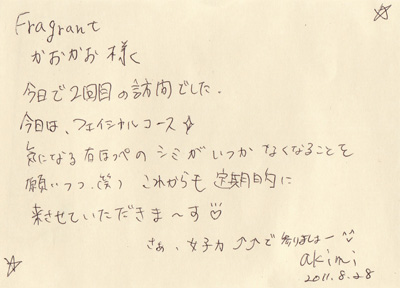 Fragrant
かおかお 様
今日で2回目の訪問でした.
今日は、フェイシャルコース☆
気になる右ほっぺの シミが いつか なくなることを
願いつつ.(笑) これからも 定期的に
来させていただきま〜す
さぁ、女子力 ↑↑で 参りましょー ^^
akimi
2011.8.28